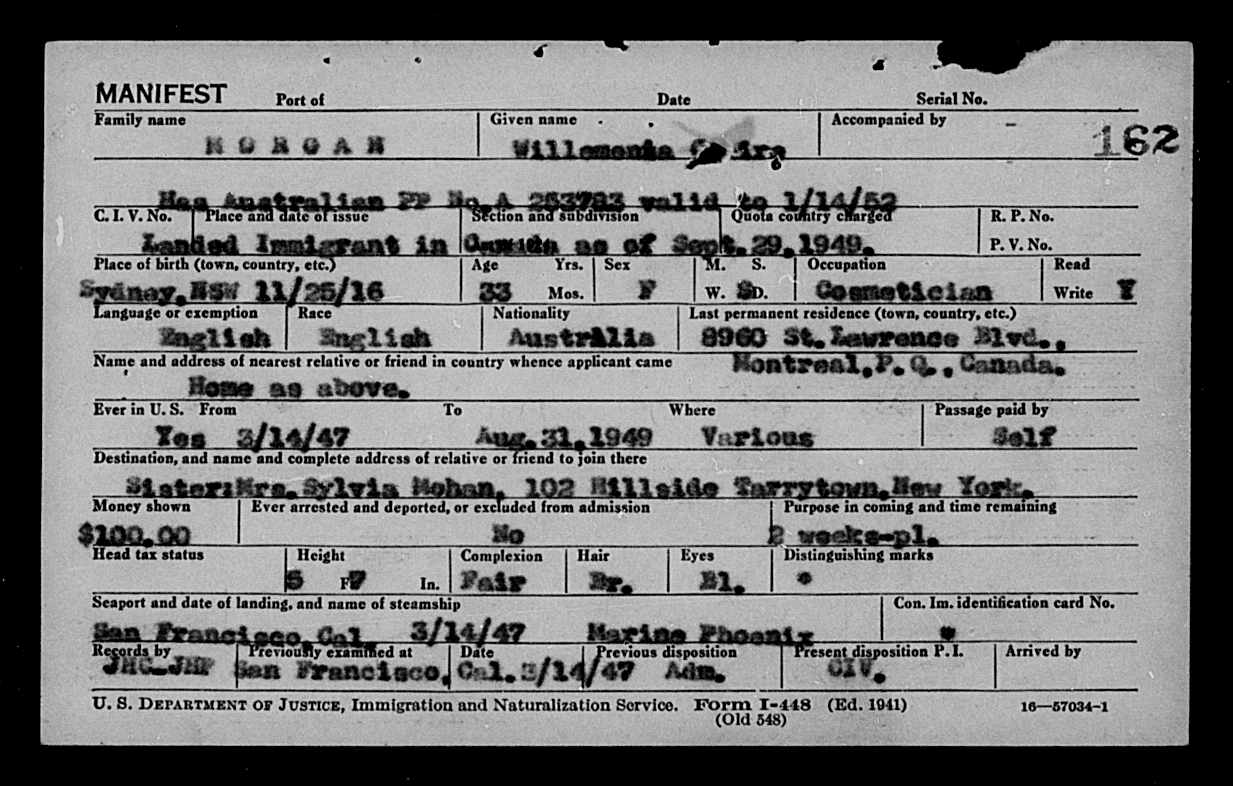 MANIFEST Port of Date Serial No.
Family name Given name Accompanied by
MORGAN Willemenia 162
Has Australian PP No.A 253783 valid to 1/14/52
C. I. V. No. Place and date of issue Section and subdivision Quota country charged R. P. No.
Landed Immigrant in Canada as of Sept.29,1949. P. V. No.
Place of birth (town, country, etc.) Age Yrs. Sex M. S. Occupation Read
Sydney,NSW 11/25/16 33 Mos. F W. S D. Cosmetician Write Y
Language or exemption Race Nationality Last permanent residence (town, country, etc.)
English English Australia 8960 St.Lawrence Blvd.,
Name and address of nearest relative or friend in country whence applicant came Montreal,P.Q.,Canada.
Home as above.
Ever in U. S. From To Where Passage paid by
Yes 3/14/47 Aug.31,1949 Various Self
Destination, and name and complete address of relative or friend to join there
Sister:Mrs.Sylvia Mohan, 102 Hillside Tarrytown,New York.
Money shown Ever arrested and deported, or excluded from admission Purpose in coming and time remaining
$100.00 No 2 weeks-pl.
Head tax status Height Complexion Hair Eyes Distinguishing marks
5 F 7 In. Fair Br. Bl. *
Seaport and date of landing, and name of steamship Con. Im. identification card No.
San Francisco,Cal. 3/14/47 Marine Phoenix *
Records by Previously examined at Date Previous disposition Present disposition P. I. Arrived by
JHC-JHF San Francisco, Cal.3/14/47 Adm. CIV.
U. S. DEPARTMENT OF JUSTICE, Immigration and Naturalization Service. Form I-448 (Ed. 1941) 16—57034-1
(Old 548)